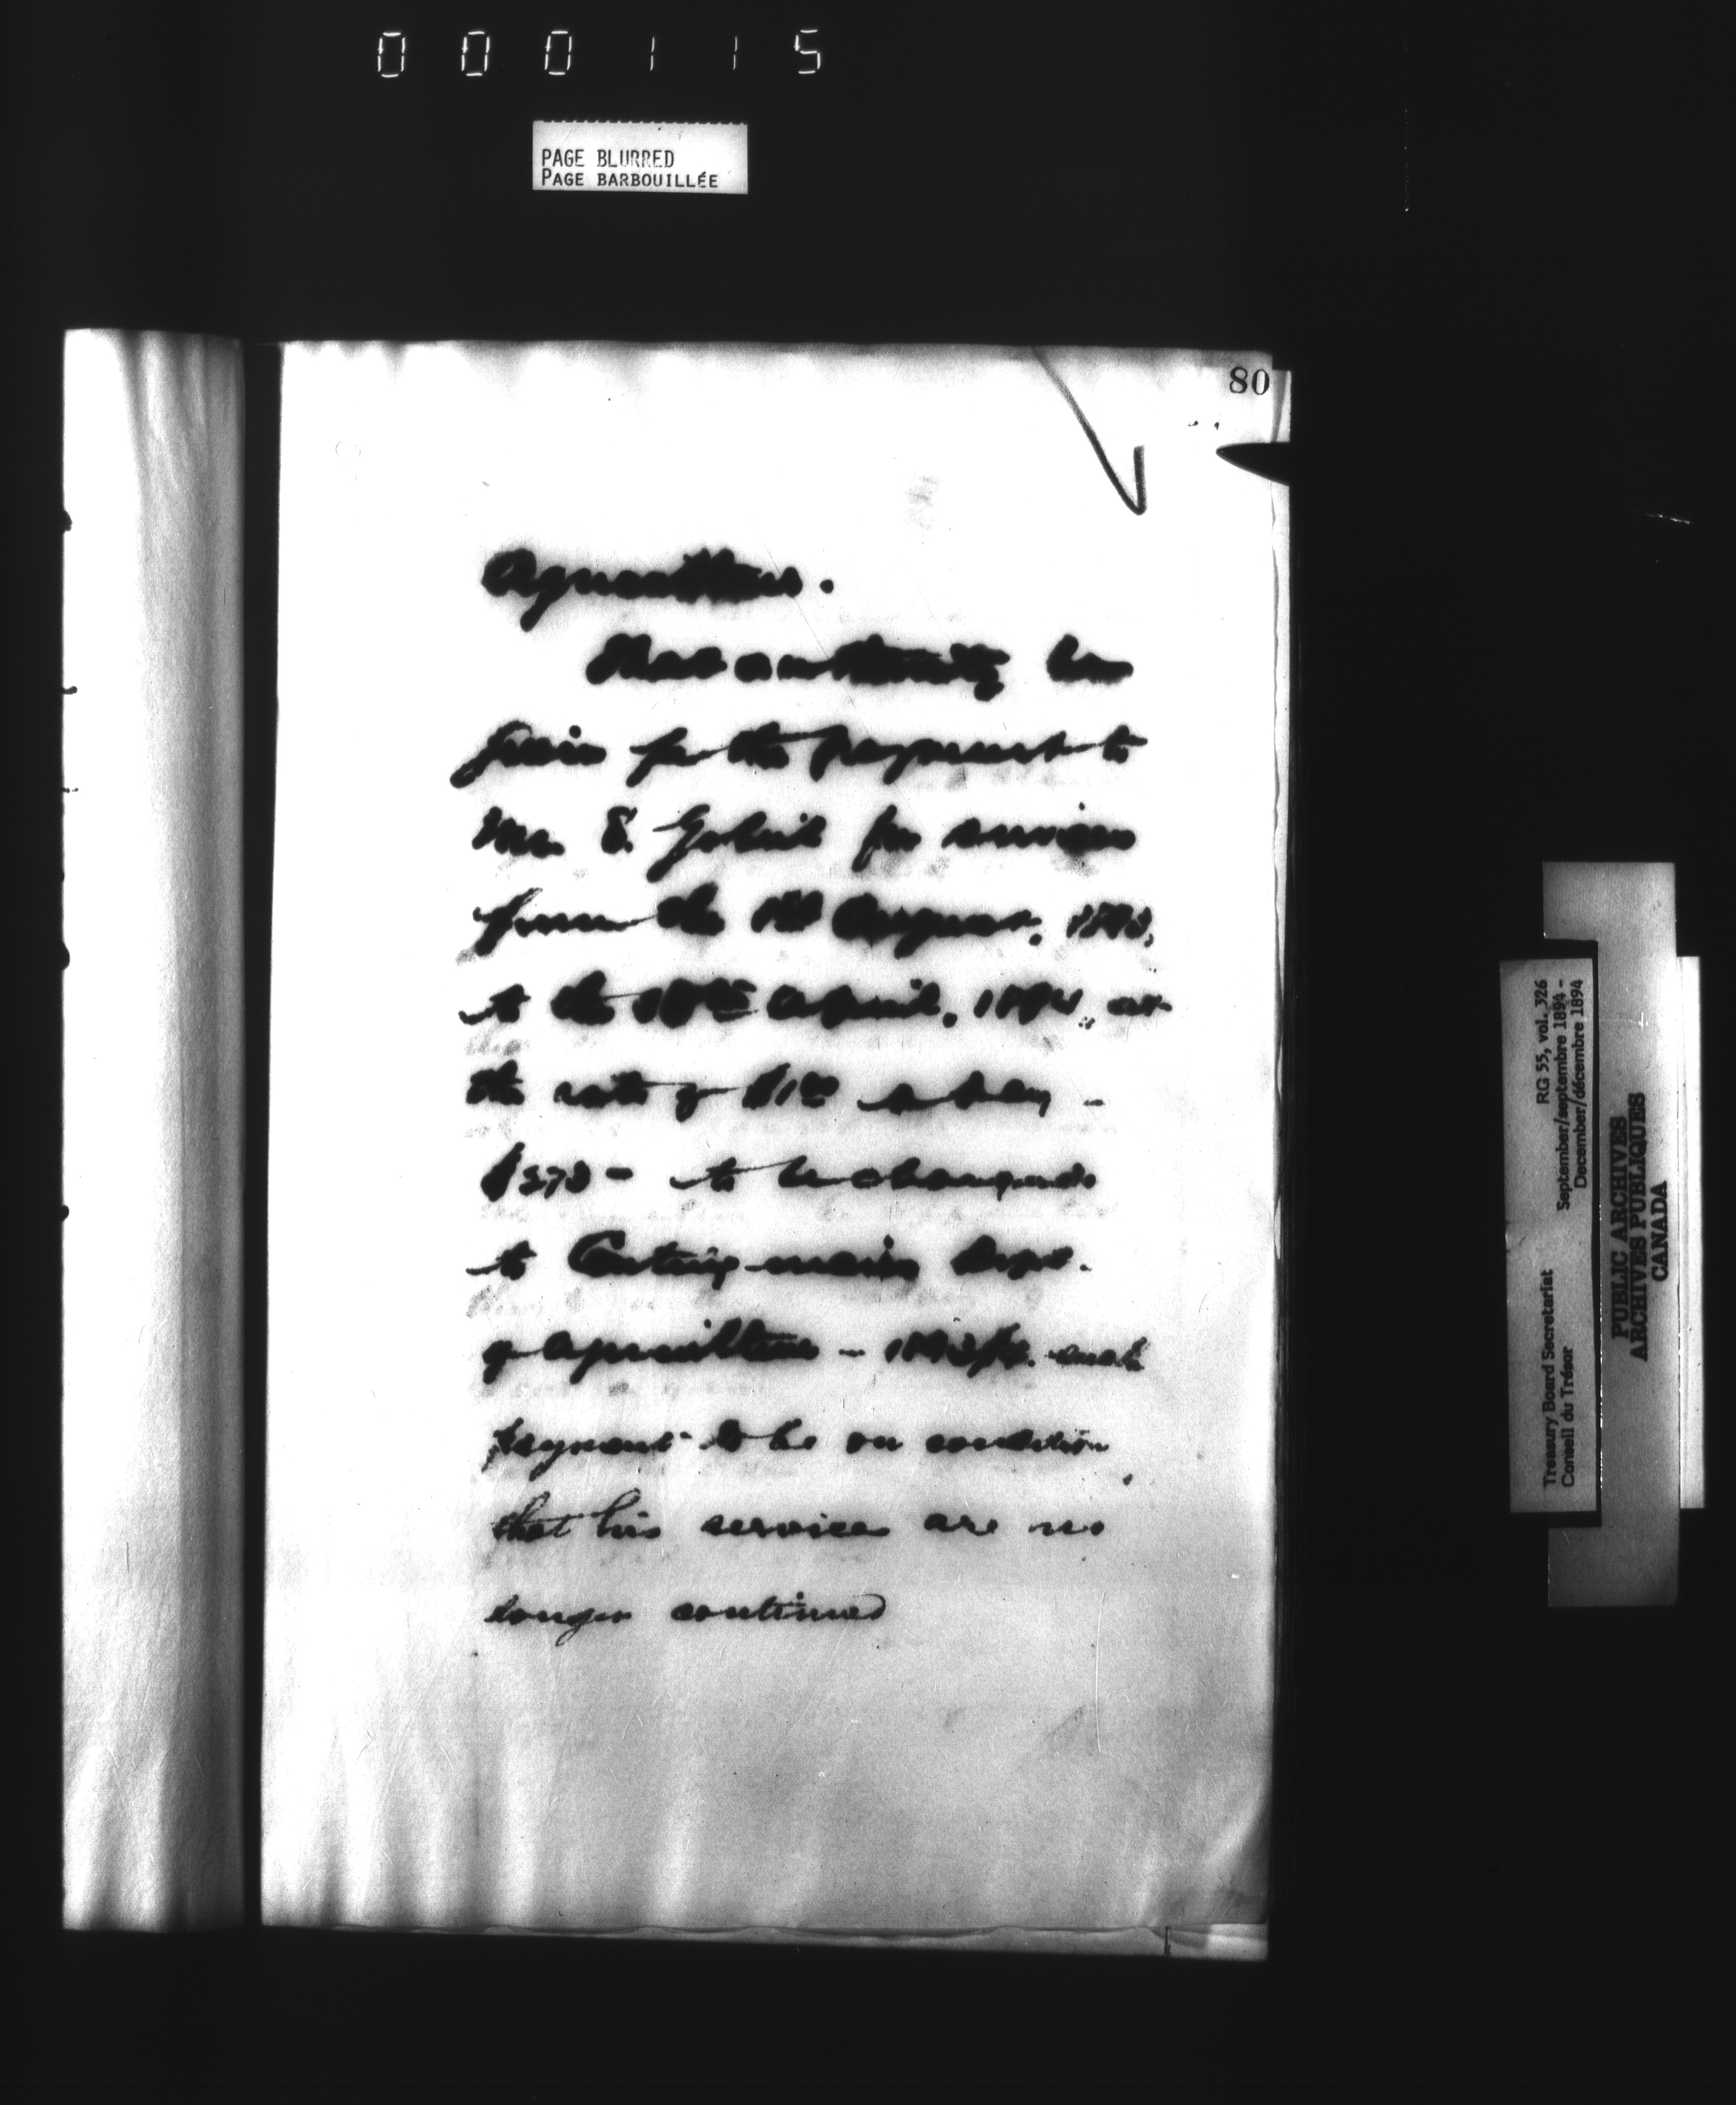 000115
PAGE BLURRED
PAGE BARBOUILLÉE
80
Agriculture.
That authority be
given for the payment to
Mr. E. for services
from the 1st August, 1893,
to the April, 1894, at
the rate of $1 00 a day -
$273 - to be charged
to Contingencies Dept.
of Agriculture - 1893/4. such
payment to be on condition
that his services are no
longer continued
RG 55, vol. 326
September/septembre 1894 -
December/décembre 1894
Treasury Board Secretariat
Conseil du Trésor
PUBLIC ARCHIVES
ARCHIVES PUBLIQUES
CANADA